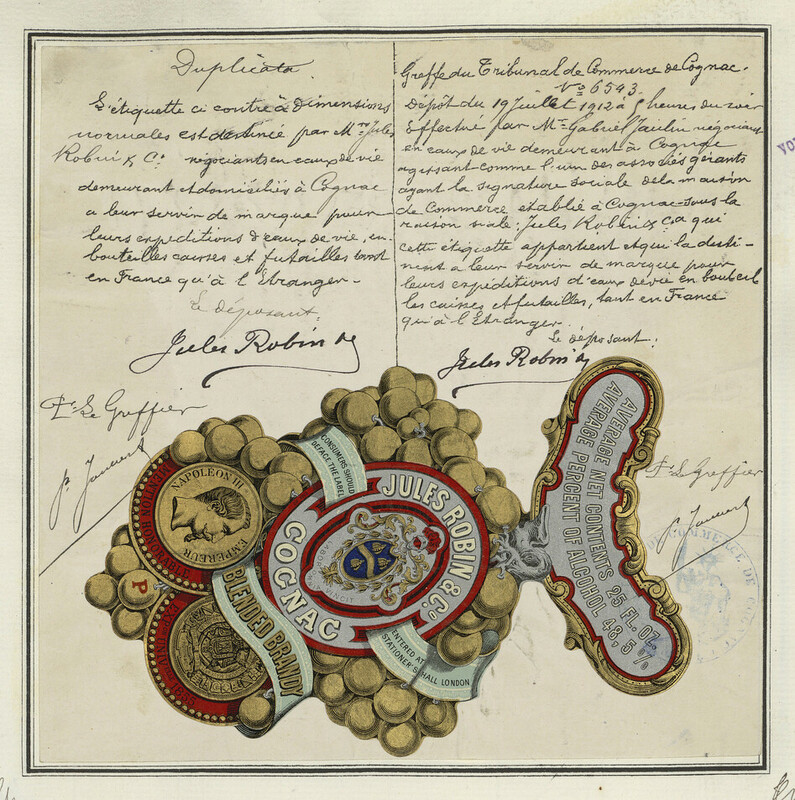 Duplicata.
L'étiquette ci contre à dimensions
normales est destinée par Mrs Jules
Robin & Co négociants en eaux de vie
demeurant et domiciliés à Cognac
a leur servir de marque pour
leurs expeditions d'eaux de vie, en
bouteilles caisses et futailles tant
en France qu'à l'Etranger.
Le déposant:
Jules Robin & Co
Le Greffier
Greffe du Tribunal de Commerce de Cognac.
No 6543.
Dépôt du 19 Juillet 1912 à 5 heures du soir
Effectué par Mr Gabriel Jaulin négociant
en eaux de vie demeurant à Cognac
agissant comme l'un des associés gérants
ayant la signature sociale de la maison
de Commerce établie à Cognac sous la
raison siale: Jules Robin & Ca qui
cette étiquette appartient et qui la desti-
nent a leur servir de marque pour
leurs expeditions d'eaux de vie en bouteil
les caisses et futailles, tant en France
qu'à l'Etranger.
Le déposant:
Jules Robin & Co
Le Greffier
CONSUMERS SHOULD
DEFACE THE LABEL
JULES ROBIN & Co
COGNAC
NAPOLEON III
EMPEREUR
MENTION HONORABLE
P
EXPon UNIVlle 1855
BLENDED BRANDY
ENTERED AT
STATIONER'S HALL LONDON
AVERAGE NET CONTENTS 25 FL. OZ.
AVERAGE PERCENT OF ALCOHOL 48,5 %
DE COMMERCE DE